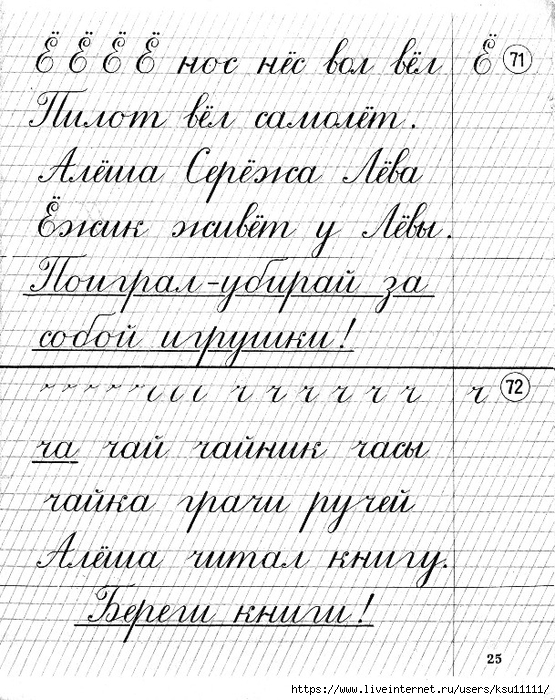 Ё Ё Ё Ё нос нёс вол вёл Ё 71
Пилот вёл самолёт.
Алёша Серёжа Лёва
Ёжик живёт у Лёвы.
Поиграл-убирай за
собой игрушки!
ч ч ч ч ч ч ч 72
ча чай чайник часы
чайка грачи ручей
Алёша читал книгу.
Береги книги!
25
https://www.liveinternet.ru/users/ksu11111/